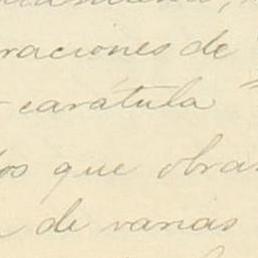 raciones de
carátula "
os que obra
de varias